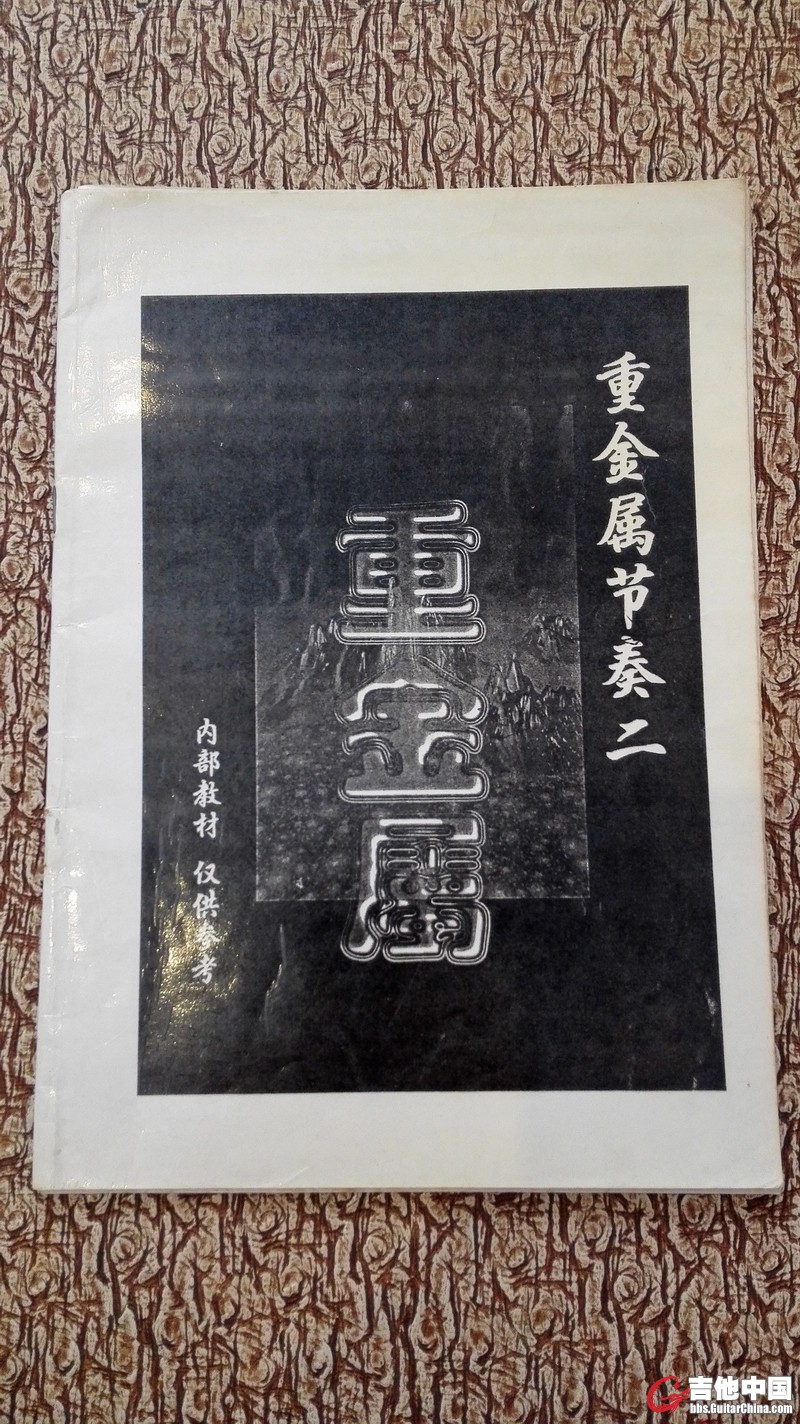 重金属节奏二
重金属
内部教材 仅供参考
吉他中国
bbs.GuitarChina.com